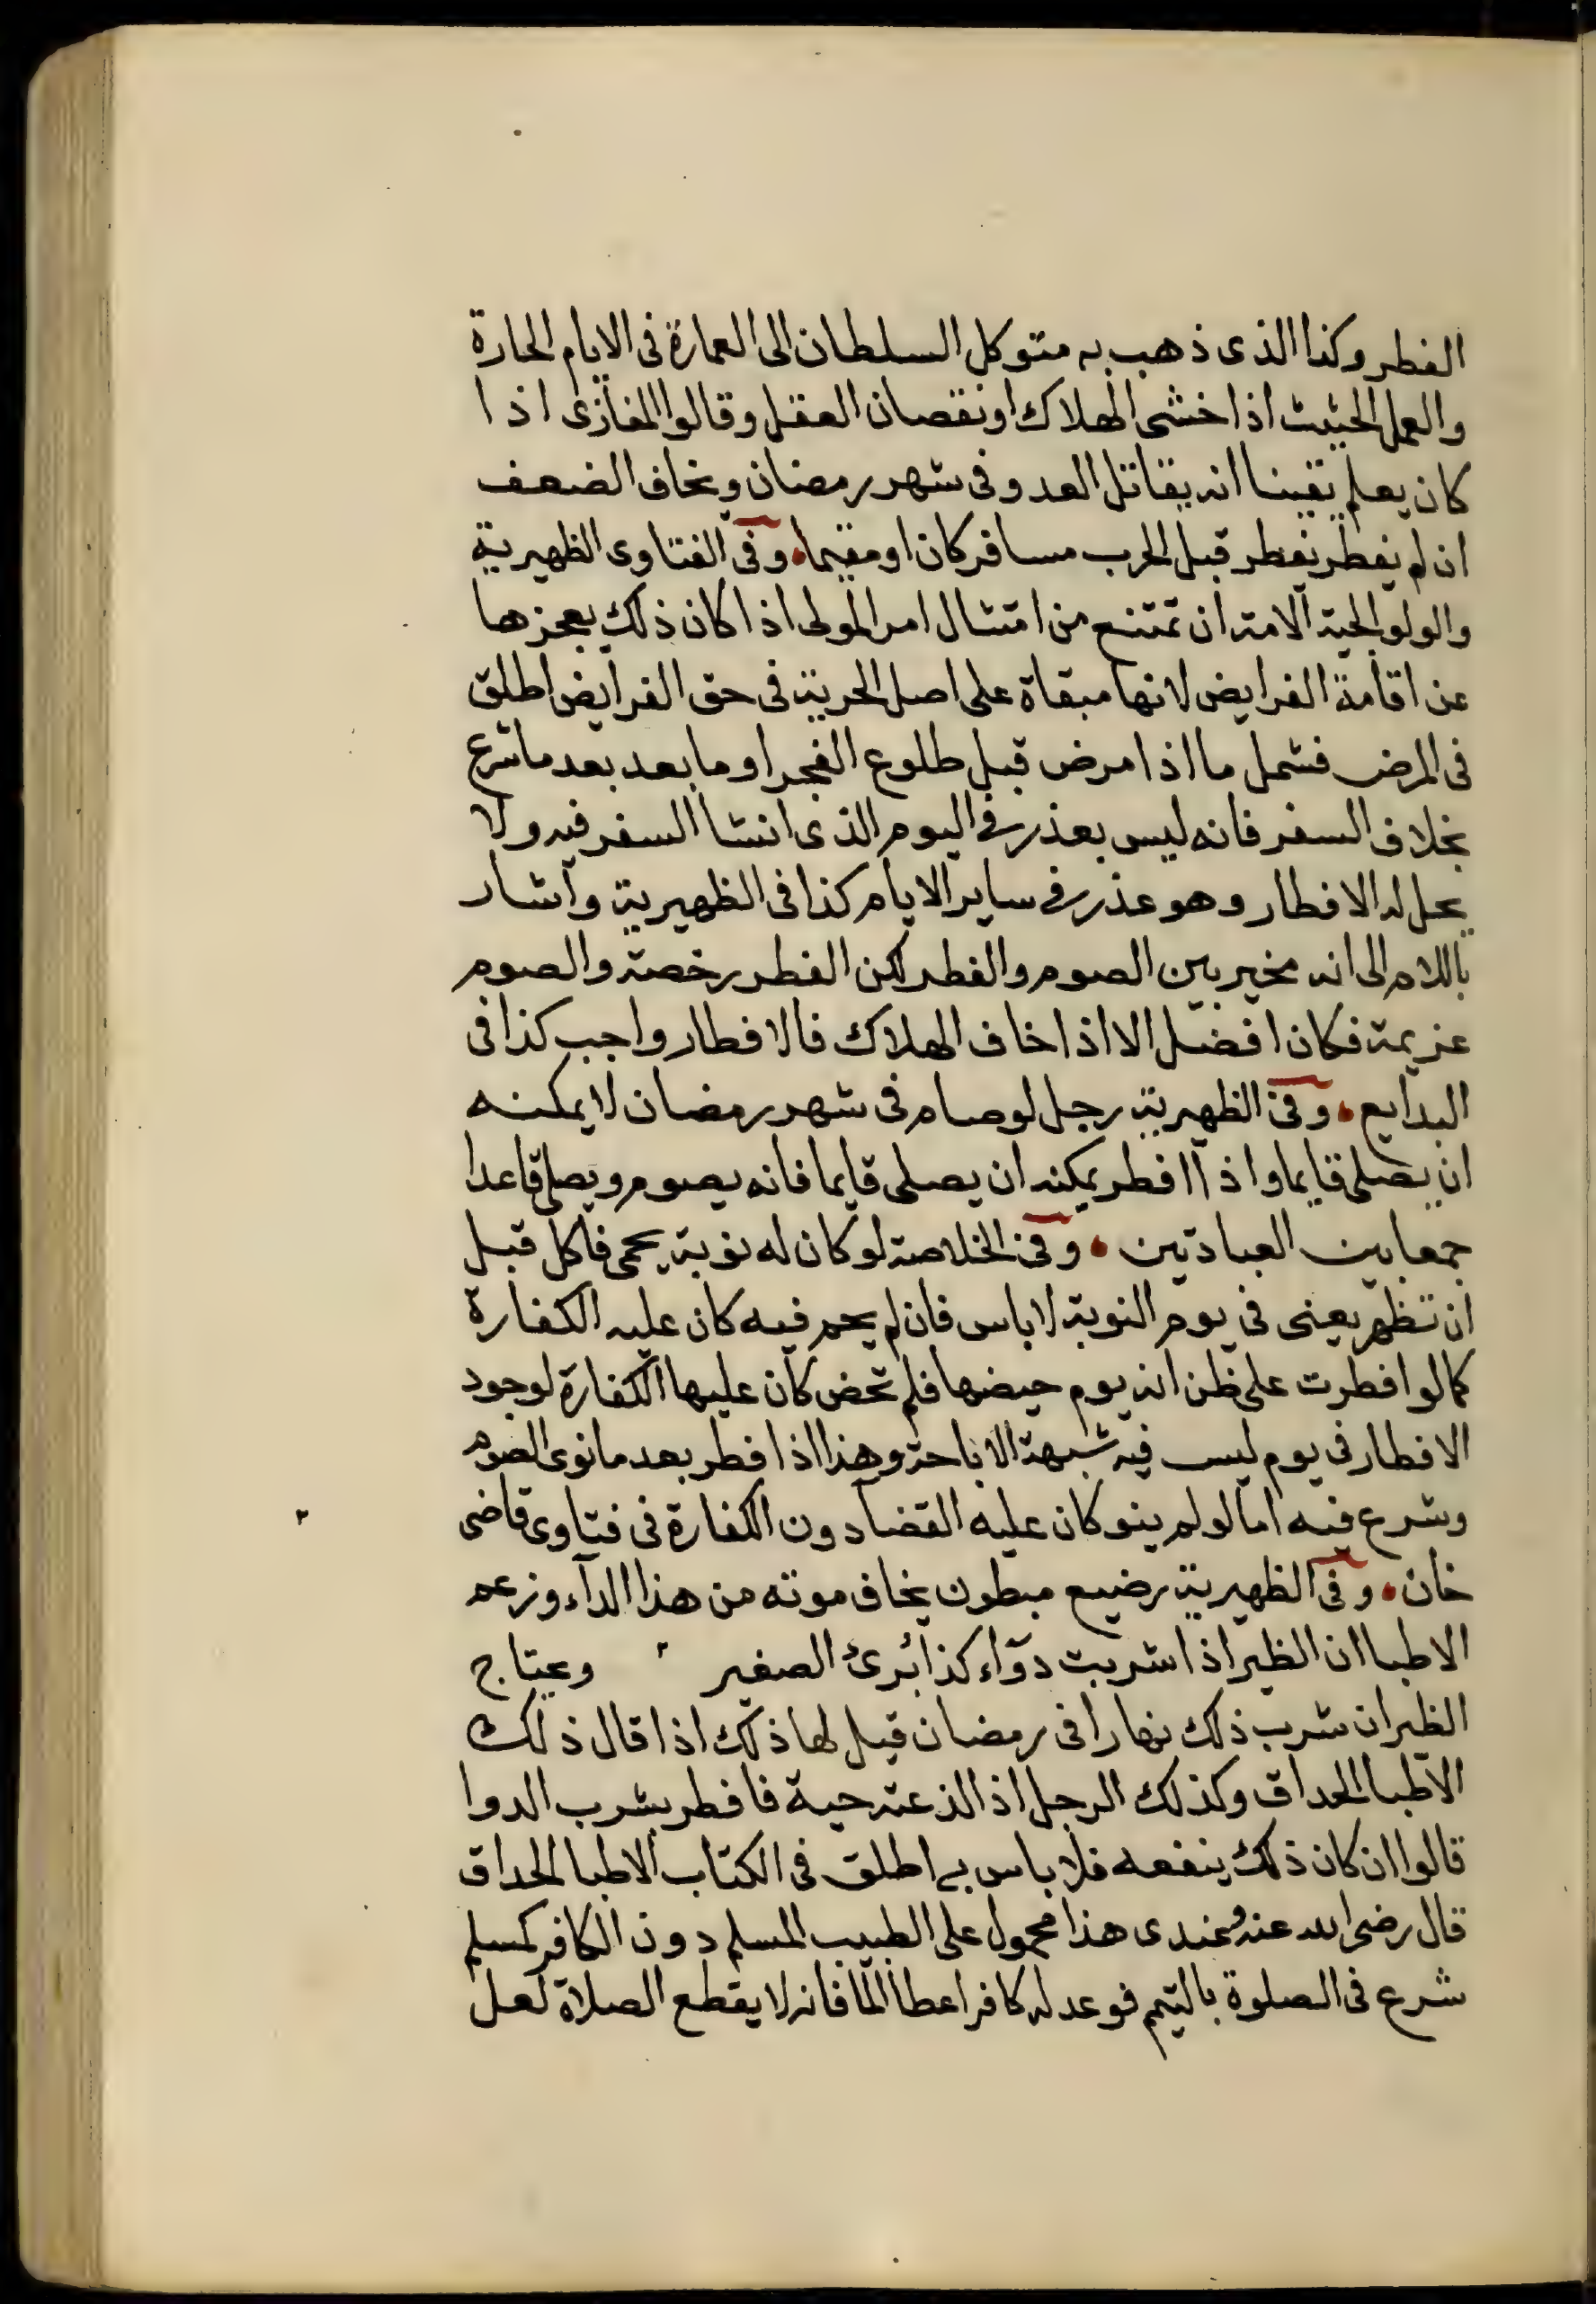 الفطر وكذا الذى ذهب به متوكل السلطان الى العمارة فى الايام الحارة
والعمل الحثيث اذا خشى الهلاك او نقصان العقل وقالوا الغازى اذا
كان يعلم يقينا انه يقاتل العدو فى شهر رمضان ويخاف الضعف
ان لم يفطر يفطر قبل الحرب مسافر كان او مقيما، وفى الفتاوى الظهيرية
والولوالجية الامة ان تمتنع من امتثال امر المولى اذا كان ذلك يعجزها
عن اقامة الفرايض لانها مبقاة على اصل الحرية فى حق الفرايض اطلق
فى المرض فشمل ما اذا مرض قبل طلوع الفجر او ما بعد بعد ما شرع
بخلاف السفر فانه ليس بعذر فى اليوم الذى انشا السفر فيه ولا
يحل له الافطار وهو عذر فى ساير الايام كذا فى الظهيرية واشار
باللام الى انه مخير بين الصوم والفطر لكن الفطر رخصة والصوم
عزيمة فكان افضل الا اذا خاف الهلاك فالافطار واجب كذا فى
البدايع، وفى الظهيرية رجل لو صام فى شهر رمضان لا يمكنه
ان يصلى قايما واذا افطر يمكنه ان يصلى قايما فانه يصوم ويصلى قاعدا
جمعا بين العبادتين ، وفى الخلاصة لو كان له نوبة يحمى فاكل قبل
ان تظهر يعنى فى يوم النوبة لا باس فان لم يحم فيه كان عليه الكفارة
كما لو افطرت على ظن انه يوم حيضها فلم تحض كان عليها الكفارة لوجود
الافطار فى يوم ليس فيه شبهة الاباحة وهذا اذا افطر بعد ما نوى الصوم
وشرع فيه اما لو لم ينو كان عليه القضآ دون الكفارة فى فتاوى قاضى
خان، وفى الظهيرية رضيع مبطون يخاف موته من هذا الدآء وزعم
الاطبا ان الظير اذا شربت دوآء كذا برئ الصغير وعتاج
الظير ان شرب ذلك نهارا فى رمضان قيل لها ذلك اذا قال ذلك
الاطبا الحداق وكذلك الرجل اذا لذعته حية فافطر بشرب الدوا
قالوا ان كان ذلك ينفعه فلا باس به اطلق فى الكتاب الاطبا الحداق
قال رضى الله عنه وعندى هذا محمول على الطبيب المسلم دون الكافر كمسلم
شرع فى الصلوة بالتيمم فوعد له كافر اعطا الما فانه لا يقطع الصلاة لعل